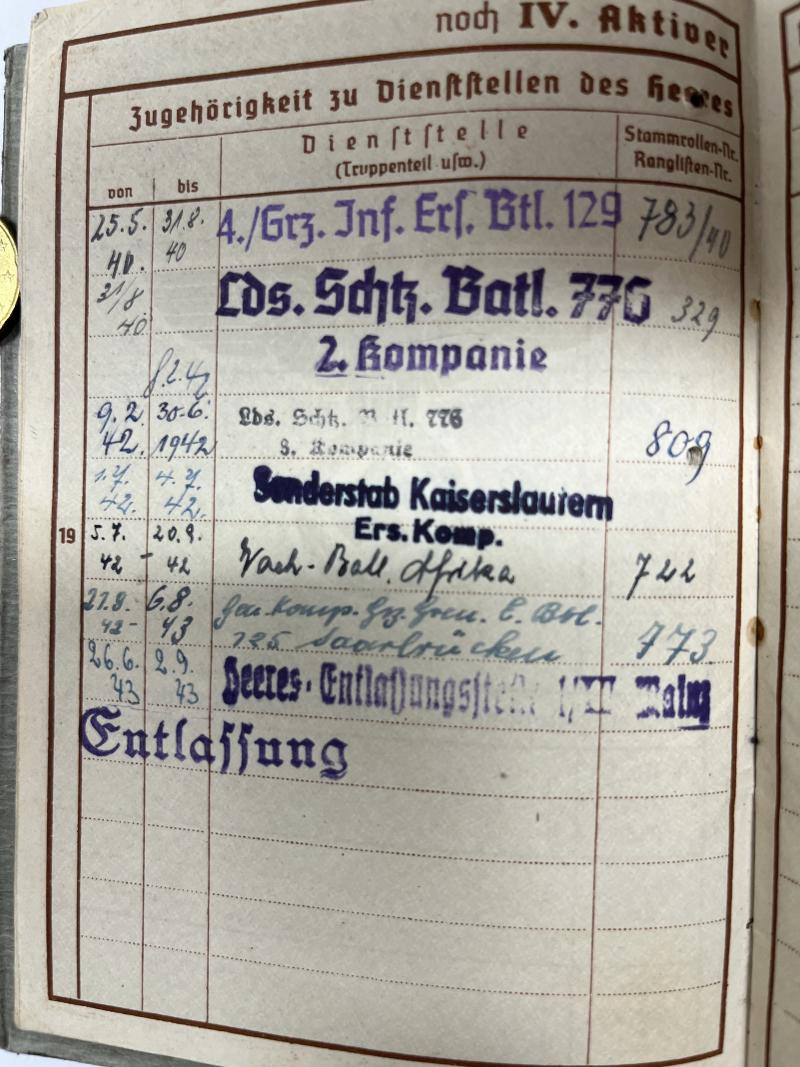 noch IV. Aktiver
Zugehörigkeit zu Dienststellen des Heeres
von bis
Dienststelle
(Truppenteil usw.)
Stammrollen-Nr.
Ranglisten-Nr.
25.5. 31.8. 4./Grz. Inf. Ers. Btl. 129 783/40
40. 40
31/8 Lds. Schtz. Batl. 776 329
40
2. Kompanie
8.2.42
9.2. 30.6. Lds. Schtz. Batl. 776 809
42. 1942 Kompanie
1.7. 4.7. Sonderstab Kaiserslautern
42. 42. Ers. Komp.
19 5.7. 20.9. Wach-Batl. Afrika 722
42 - 42
21.9. 6.8. Gen. Komp. Grz. Gren. E. Btl.
42- 43 125 Saarbrücken 773
26.6. 2.9. Heeres-Entlassungsstelle Mainz
43 43
Entlassung